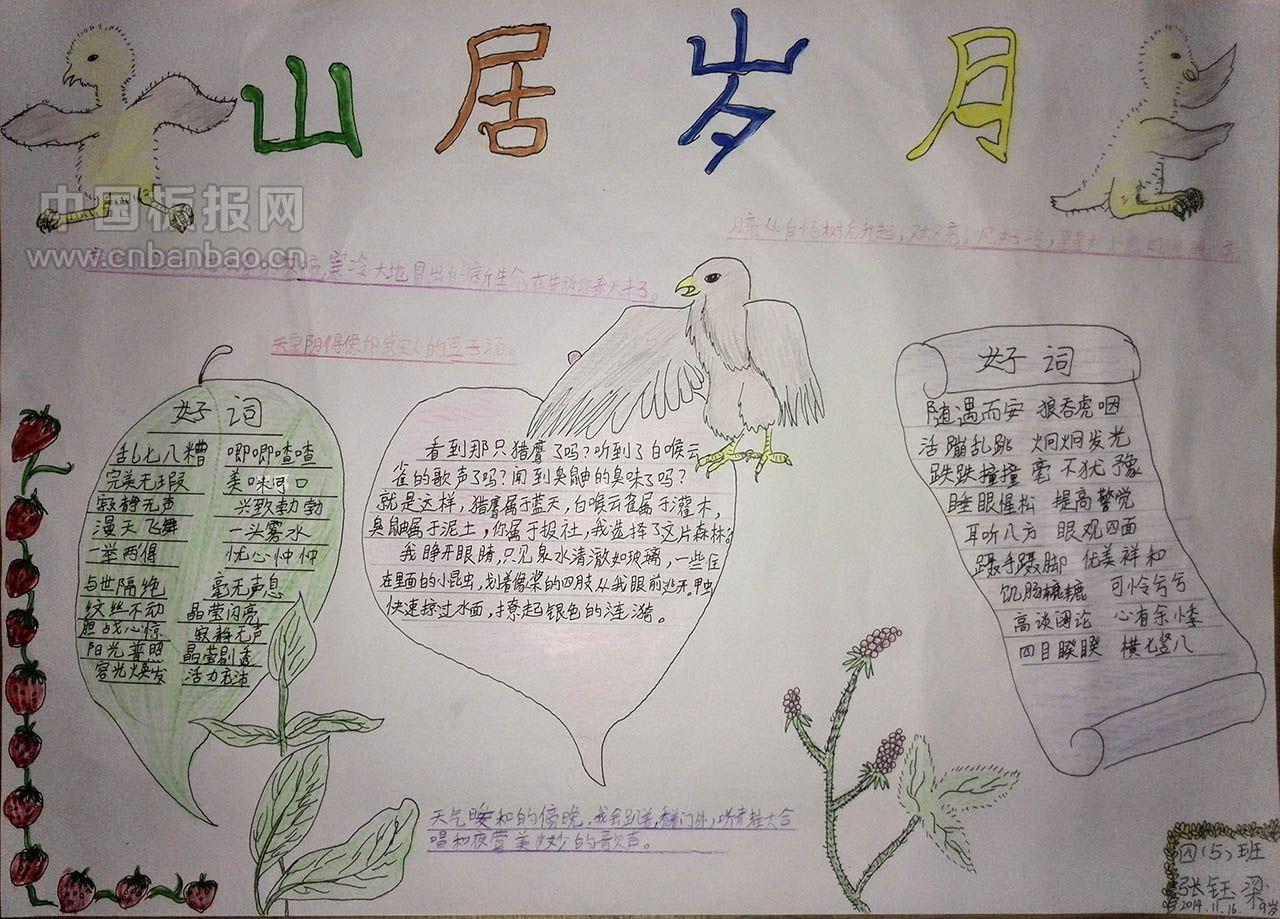 山居岁月
中国板报网
www.cnbanbao.cn
月亮从白杨树后升起，
寒冷大地冒出的新生命
天空阴得像印第安人的豆子汤。
好词
乱七八糟 唧唧喳喳
完美无瑕 美味可口
寂静无声 兴致勃勃
漫天飞舞 一头雾水
一举两得 忧心忡忡
与世隔绝 毫无声息
纹丝不动 晶莹闪亮
胆战心惊 寂静无声
阳光普照 晶莹剔透
容光焕发 活力充沛
看到那只猎鹰了吗？听到了白喉云
雀的歌声了吗？闻到臭鼬的臭味了吗？
就是这样，猎鹰属于蓝天，白喉云雀属于灌木，
臭鼬属于泥土，你属于报社，我选择了这片森林。
我睁开眼睛，只见泉水清澈如玻璃，一些住
在里面的小昆虫，划着像桨的四肢从我眼前逃开。甲虫
快速掠过水面，撩起银色的涟漪。
好词
随遇而安 狼吞虎咽
活蹦乱跳 炯炯发光
跌跌撞撞 毫不犹豫
睡眼惺松 提高警觉
耳听八方 眼观四面
蹑手蹑脚 优美祥和
饥肠辘辘 可怜兮兮
高谈阔论 心有余悸
四目睽睽 横七竖八
天气暖和的傍晚，我会趴着翻门外，听青蛙大合
唱和夜莺美妙的歌声。
四（5）班
张钰梁
2014.11.16 9岁